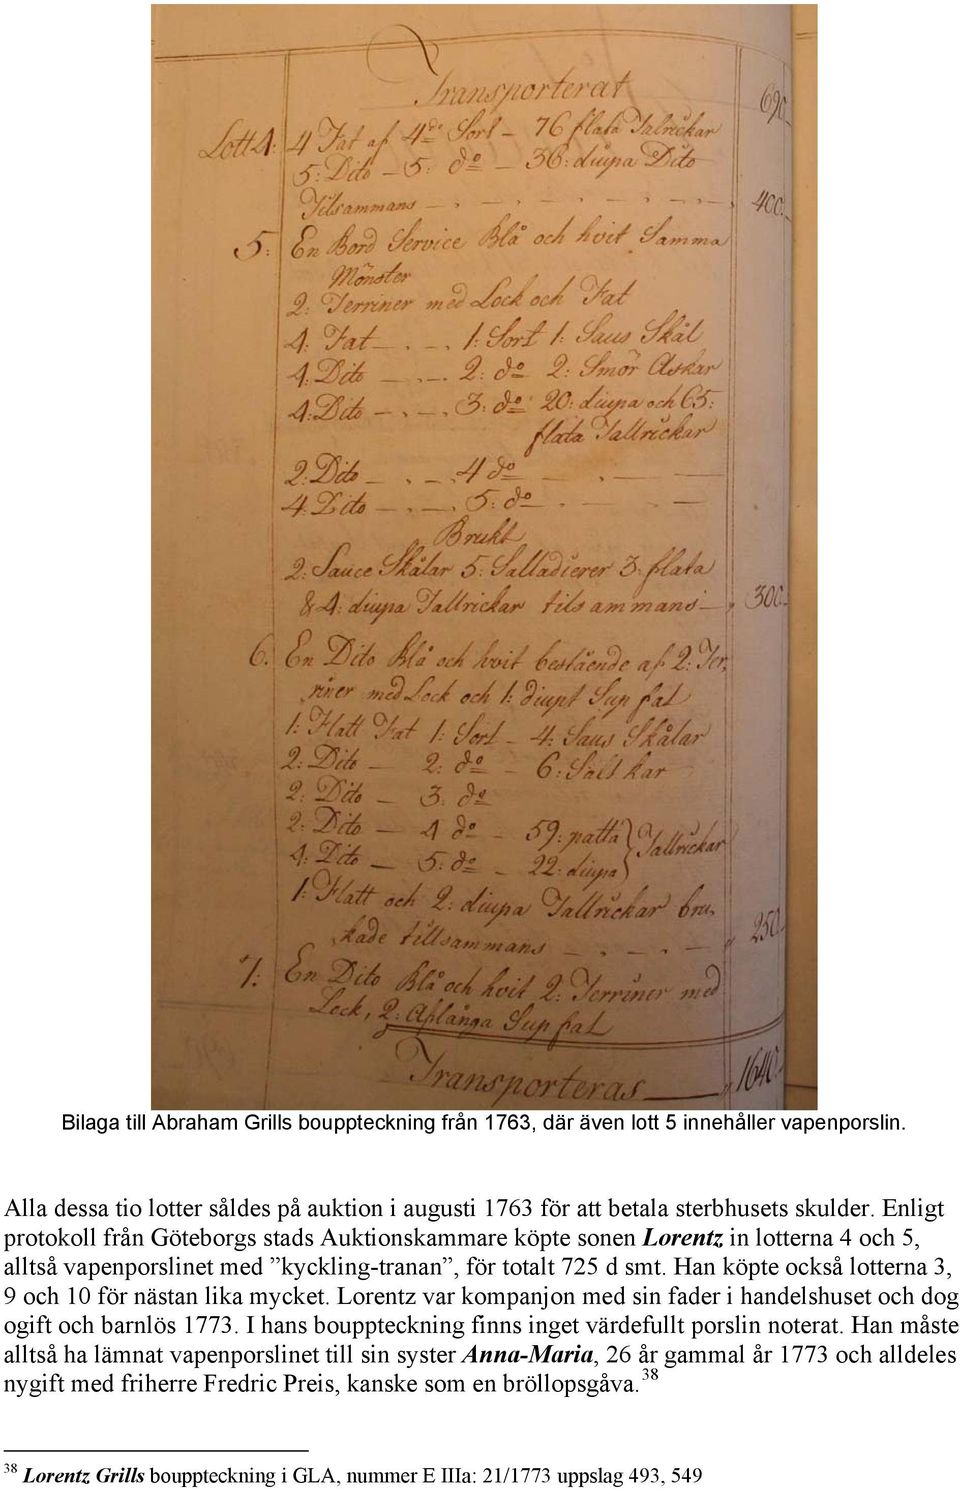 Transporterat 690.-
Lott 4: 4 Fat af 4de Sort - 76 flata Talrickar
5: Dito - 5: do - 36: diupa Dito
Tilsammans - 400.-
5: En Bord Service Blå och hvit Samma
Mönster
2: Terriner med Lock och Fat
4: Fat - 1: Sort 1: Saus Skål
4: Dito - 2: do 2: Smör Askar
4: Dito - 3: do 20: diupa och 65:
flata Tallrickar
2: Dito - 4 do -
4: Dito - 5: do -
Brukt
2: Sauce Skålar 5: Salladierer 3: flata
& 4: diupa Tallrickar tilsammans - 300.-
6. En Dito Blå och hvit bestående af 2: Ter,
riner med Lock och 1: diupt Sup fat
1: Flatt Fat 1: Sort - 4: Saus Skålar
2: Dito - 2: do - 6: Salt kar
2: Dito - 3: do
2: Dito - 4 do - 59: platta } Tallrickar
4: Dito - 5: do - 22: diupa }
1: Flatt och 2: diupa Tallrickar bru,
kade tillsammans - 250.-
7: En Dito Blå och hvit 2: Terriner med
Lock, 2: Aflånga Sup fat
Transporteras - 1640.-
Bilaga till Abraham Grills bouppteckning från 1763, där även lott 5 innehåller vapenporslin.
Alla dessa tio lotter såldes på auktion i augusti 1763 för att betala sterbhusets skulder. Enligt
protokoll från Göteborgs stads Auktionskammare köpte sonen Lorentz in lotterna 4 och 5,
alltså vapenporslinet med ”kyckling-tranan”, för totalt 725 d smt. Han köpte också lotterna 3,
9 och 10 för nästan lika mycket. Lorentz var kompanjon med sin fader i handelshuset och dog
ogift och barnlös 1773. I hans bouppteckning finns inget värdefullt porslin noterat. Han måste
alltså ha lämnat vapenporslinet till sin syster Anna-Maria, 26 år gammal år 1773 och alldeles
nygift med friherre Fredric Preis, kanske som en bröllopsgåva.38
38 Lorentz Grills bouppteckning i GLA, nummer E IIIa: 21/1773 uppslag 493, 549